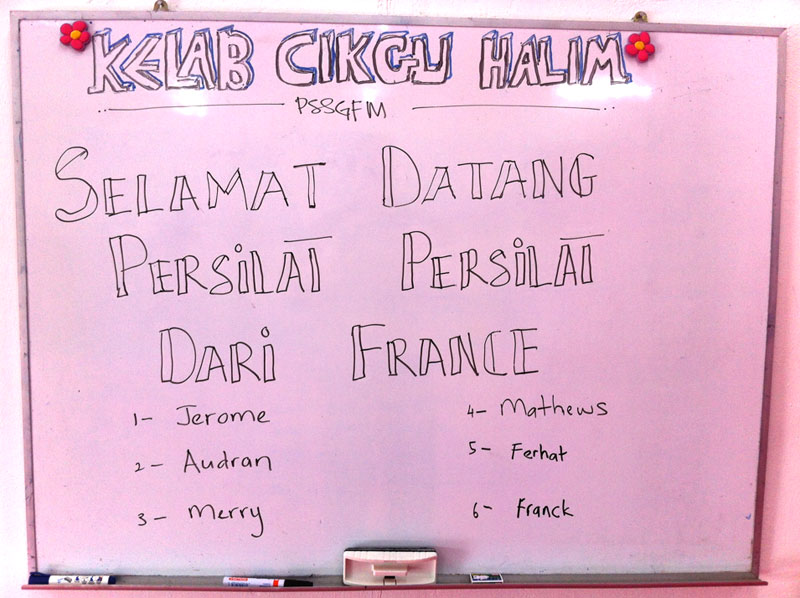 KELAB CIKGU HALIM
PSSGFM
SELAMAT DATANG
PERSILAT PERSILAT
DARI FRANCE
1- Jerome
2- Audran
3- Merry
4- Mathews
5- Ferhat
6- Franck